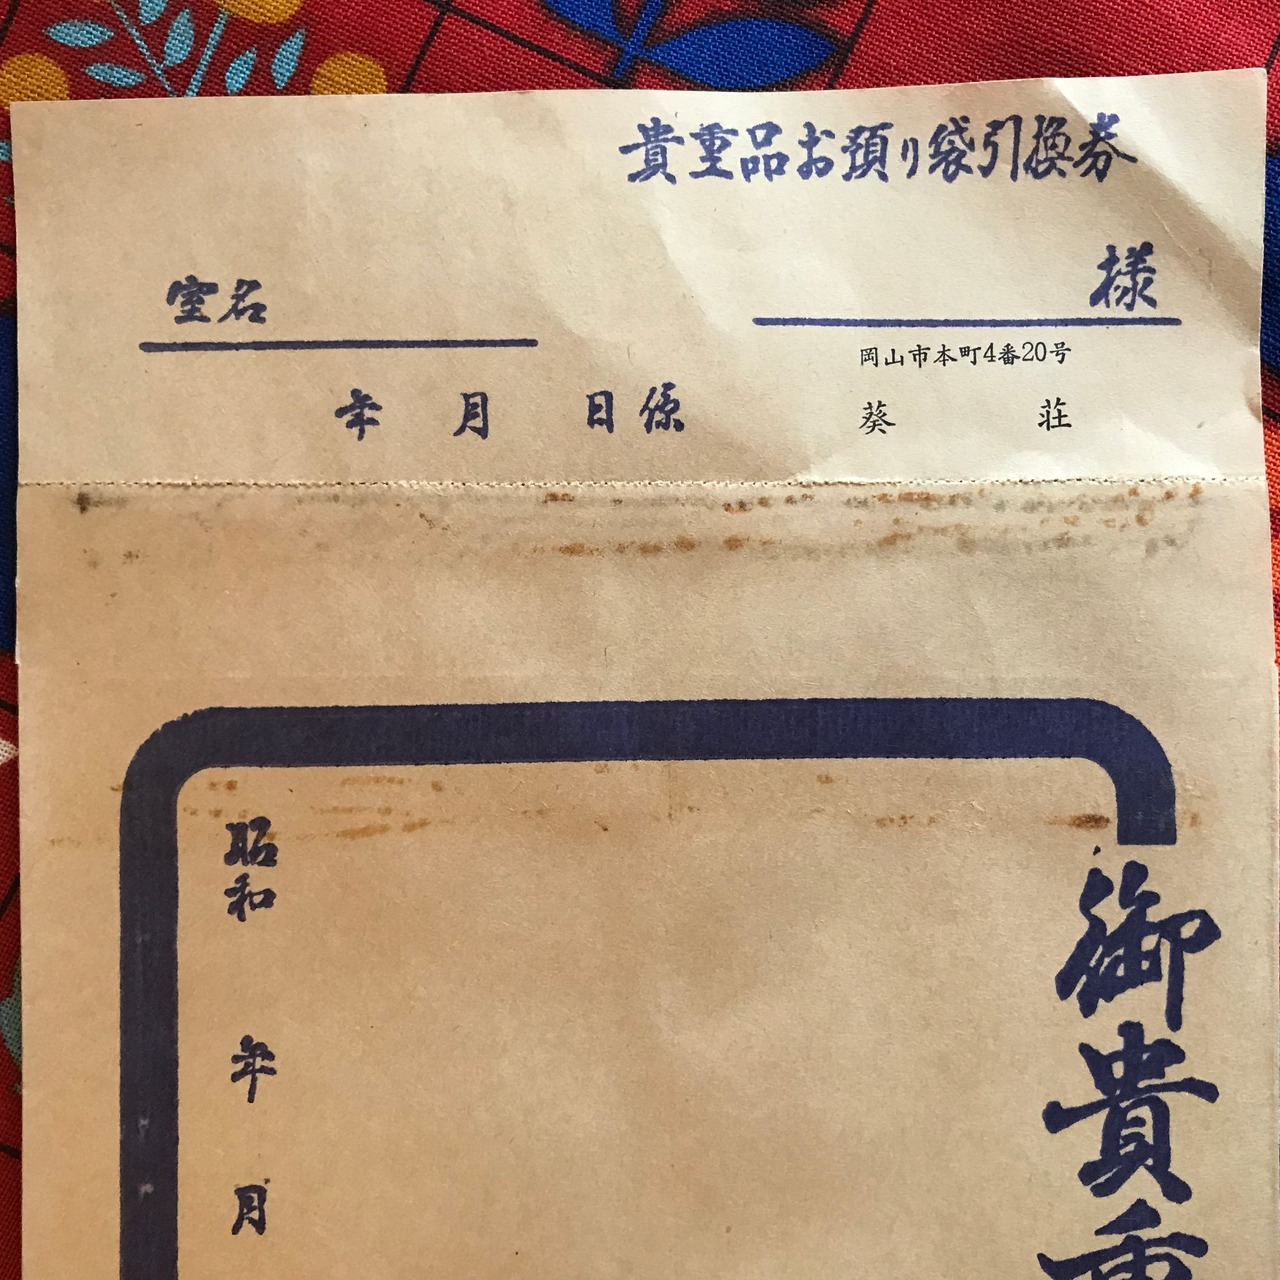 貴重品お預り袋引換券
様
室名
岡山市本町4番20号
年 月 日係
葵 荘
御貴重
昭和 年 月